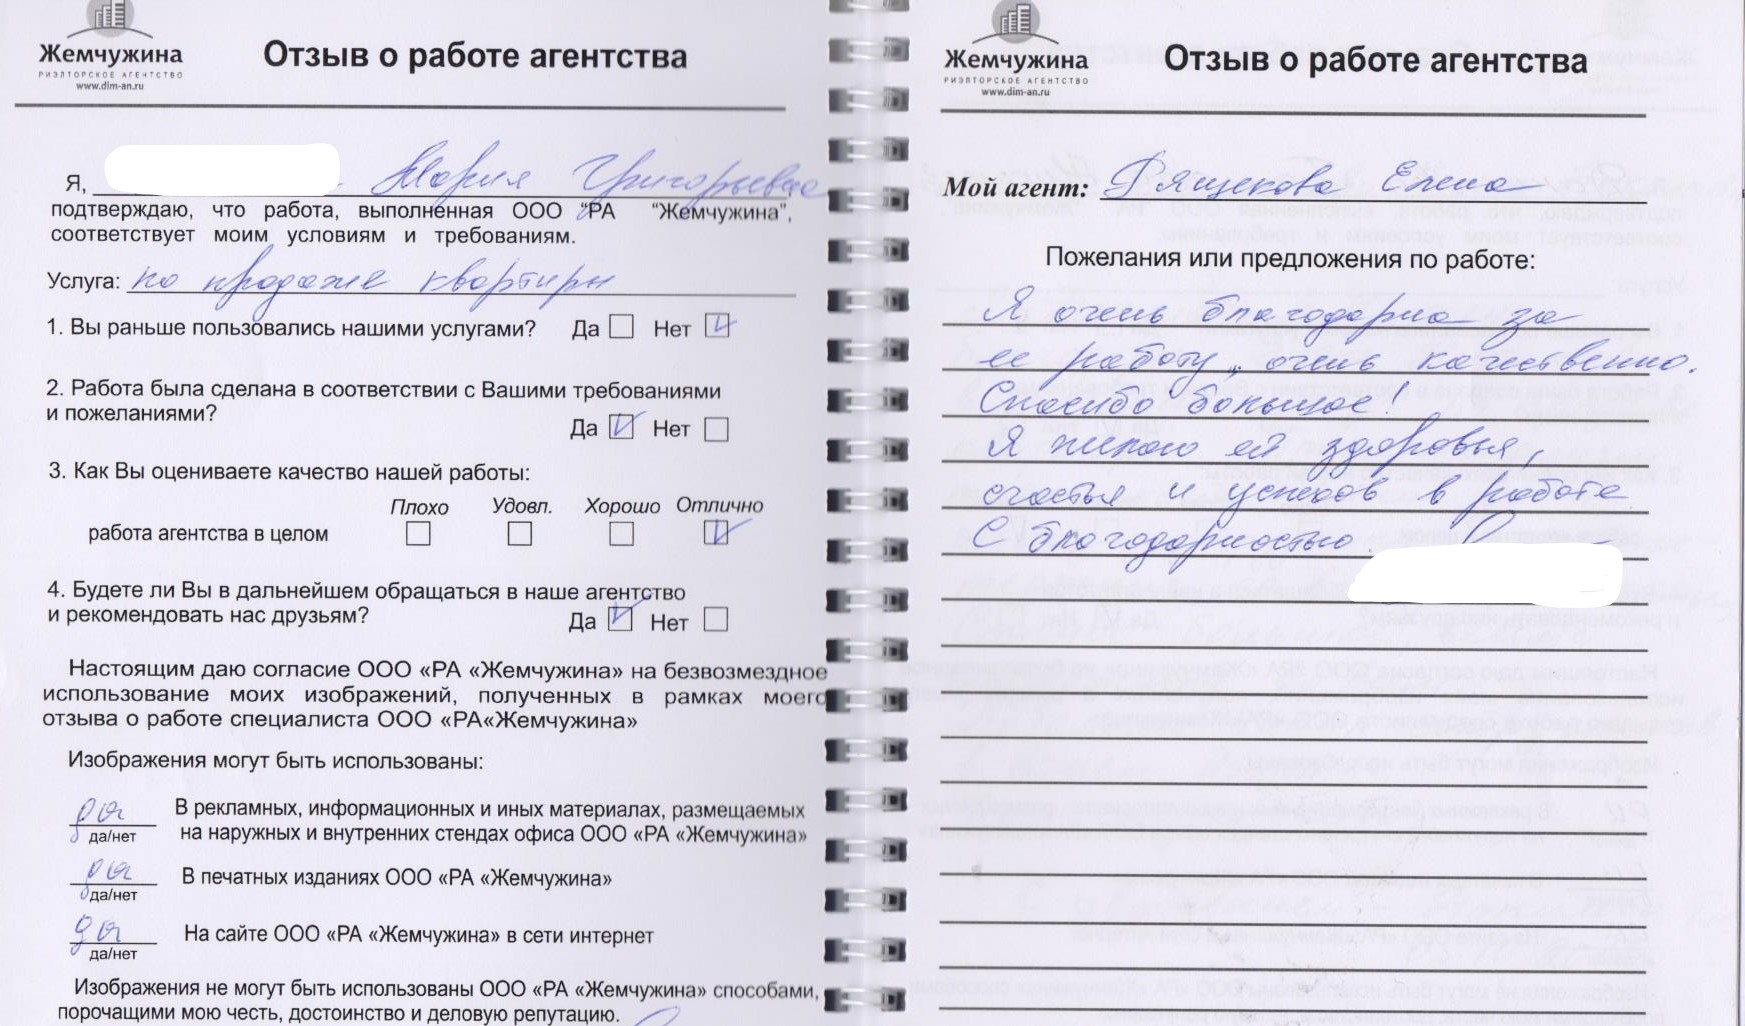 Жемчужина
РИЭЛТОРСКОЕ АГЕНТСТВО
www.dim-an.ru
Отзыв о работе агентства
Я, Мария Григорьевна
подтверждаю, что работа, выполненная ООО “РА “Жемчужина”,
соответствует моим условиям и требованиям.
Услуга: по продаже квартиры
1. Вы раньше пользовались нашими услугами? Да Нет
2. Работа была сделана в соответствии с Вашими требованиями
и пожеланиями?
Да Нет
3. Как Вы оцениваете качество нашей работы:
Плохо Удовл. Хорошо Отлично
работа агентства в целом
4. Будете ли Вы в дальнейшем обращаться в наше агентство
и рекомендовать нас друзьям?
Да Нет
Настоящим даю согласие ООО «РА «Жемчужина» на безвозмездное
использование моих изображений, полученных в рамках моего
отзыва о работе специалиста ООО «РА«Жемчужина»
Изображения могут быть использованы:
да В рекламных, информационных и иных материалах, размещаемых
да/нет на наружных и внутренних стендах офиса ООО «РА «Жемчужина»
да В печатных изданиях ООО «РА «Жемчужина»
да/нет
да На сайте ООО «РА «Жемчужина» в сети интернет
да/нет
Изображения не могут быть использованы ООО «РА «Жемчужина» способами,
порочащими мою честь, достоинство и деловую репутацию.
Жемчужина
РИЭЛТОРСКОЕ АГЕНТСТВО
www.dim-an.ru
Отзыв о работе агентства
Мой агент: Елена
Пожелания или предложения по работе:
Я очень благодарна за
ее работу, очень качественно.
Спасибо большое!
Я желаю ей здоровья,
счастья и успехов в работе
С благодарностью